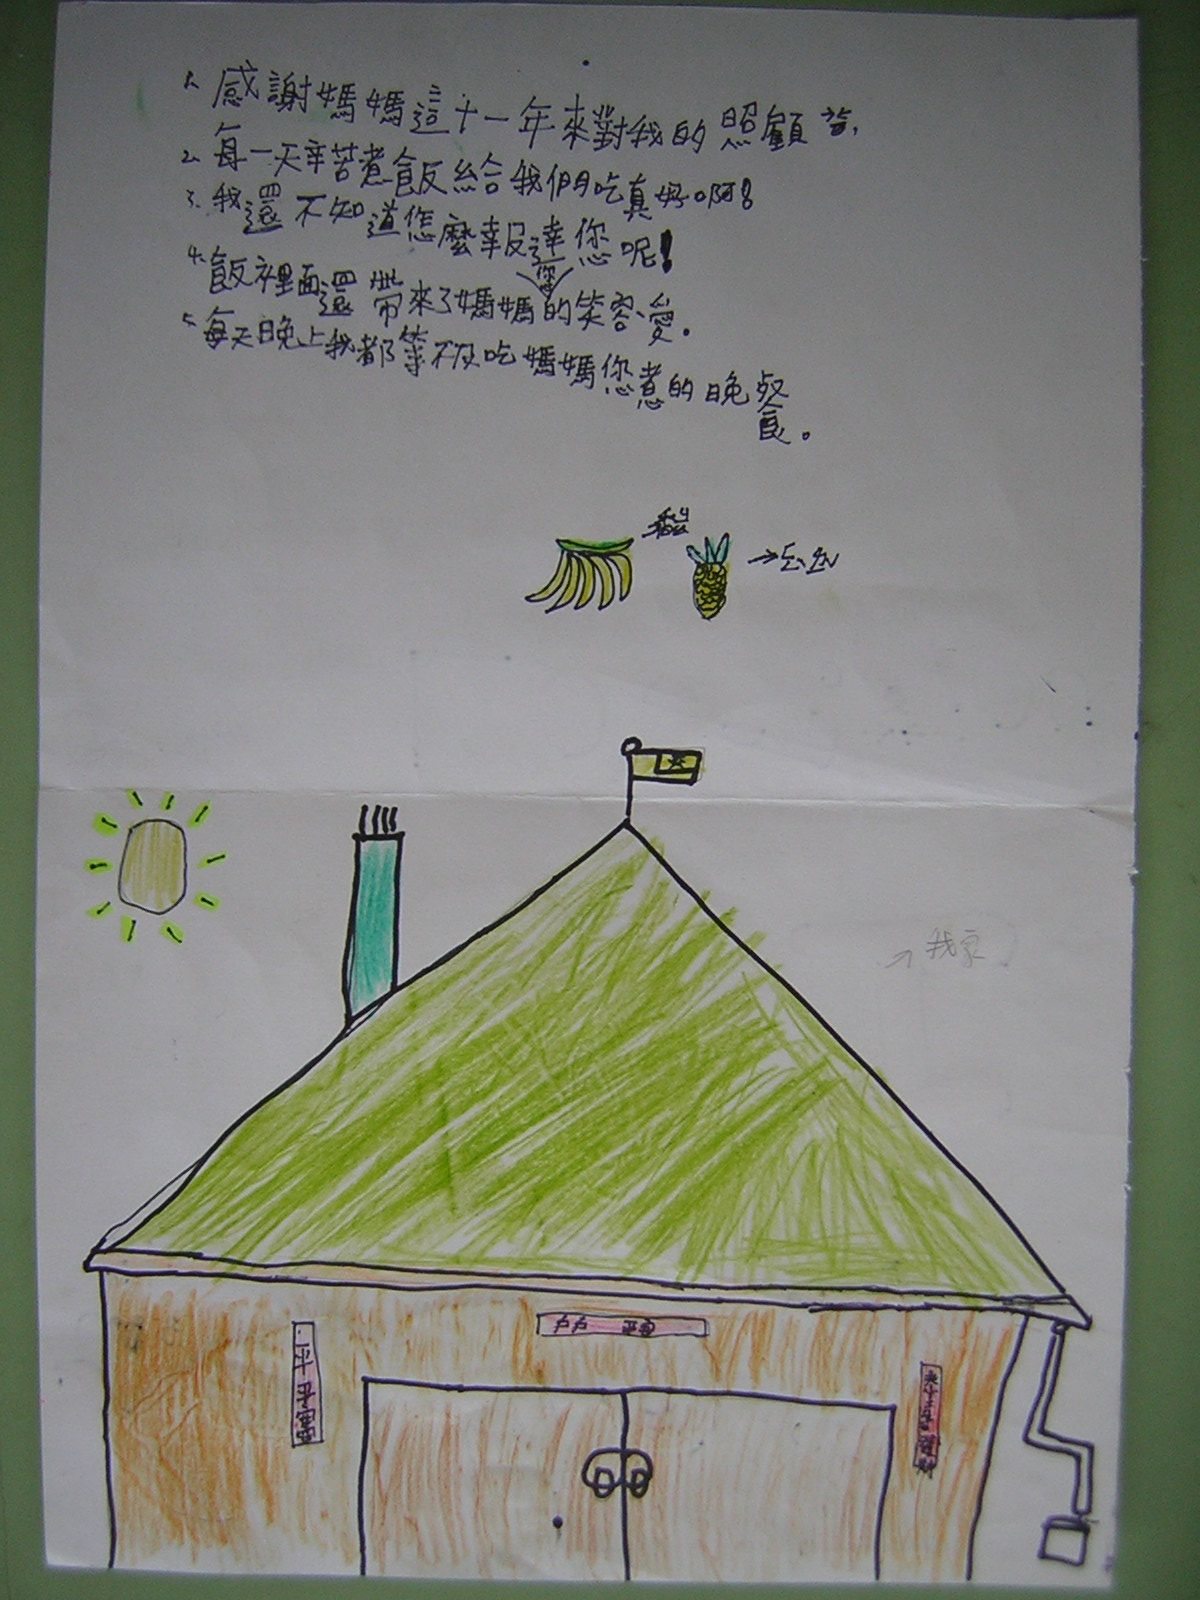 1. 感謝媽媽這十一年來對我的照顧
2. 每一天辛苦煮飯給我們吃真好啊!
3. 我還不知道怎麼報達您呢!
4. 飯裡面還帶來了媽媽您的笑容、愛。
5. 每天晚上我都等不及吃媽媽您煮的晚餐。
→我家